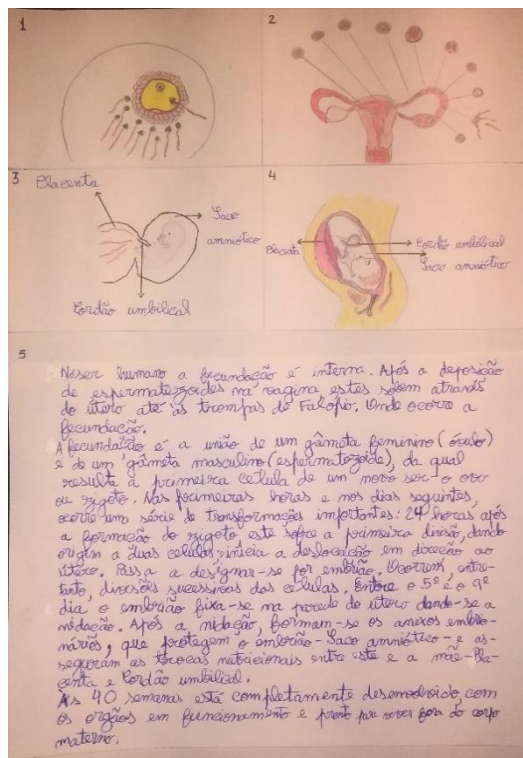 1
2
3
Placenta
Saco
amniótico
Cordão umbilical
4
Placenta
Cordão umbilical
Saco amniótico
5
No ser humano a fecundação é interna. Após a deposição
de espermatezoides na vagina, estes sobem através
do útero até às trompas de Falópio. Onde ocorre a
fecundação.
A fecundação é a união de um gâmeta feminino (óvulo)
e de um gâmeta masculino (espermatozoide), da qual
resulta a primeira célula de um novo ser - o ovo
ou zigoto. Nas primeiras horas e nos dias seguintes,
ocorre um série de transformações importantes: 24 horas após
a formação do zigoto, este sofre a primeira divisão, dando
origem a duas celulas, inicia a deslocação em direcção ao
útero. Passa a designar-se por embrião. Ocorrem, entre-
tanto, divisões sucessivas das células. Entre o 5º e o 9º
dia o embrião fixa-se na parede do útero dando-se a
nidação. Após a nidação, formam-se os anexos embrio-
nários, que protegem o embrião - Saco amniótico - e as-
seguram as trocas nutricionais entre este e a mãe - Pla-
centa e Cordão umbilical.
As 40 semanas está completamente desenvolvido, com
os orgãos em funcionamento e pronto para viver fora do corpo
materno.